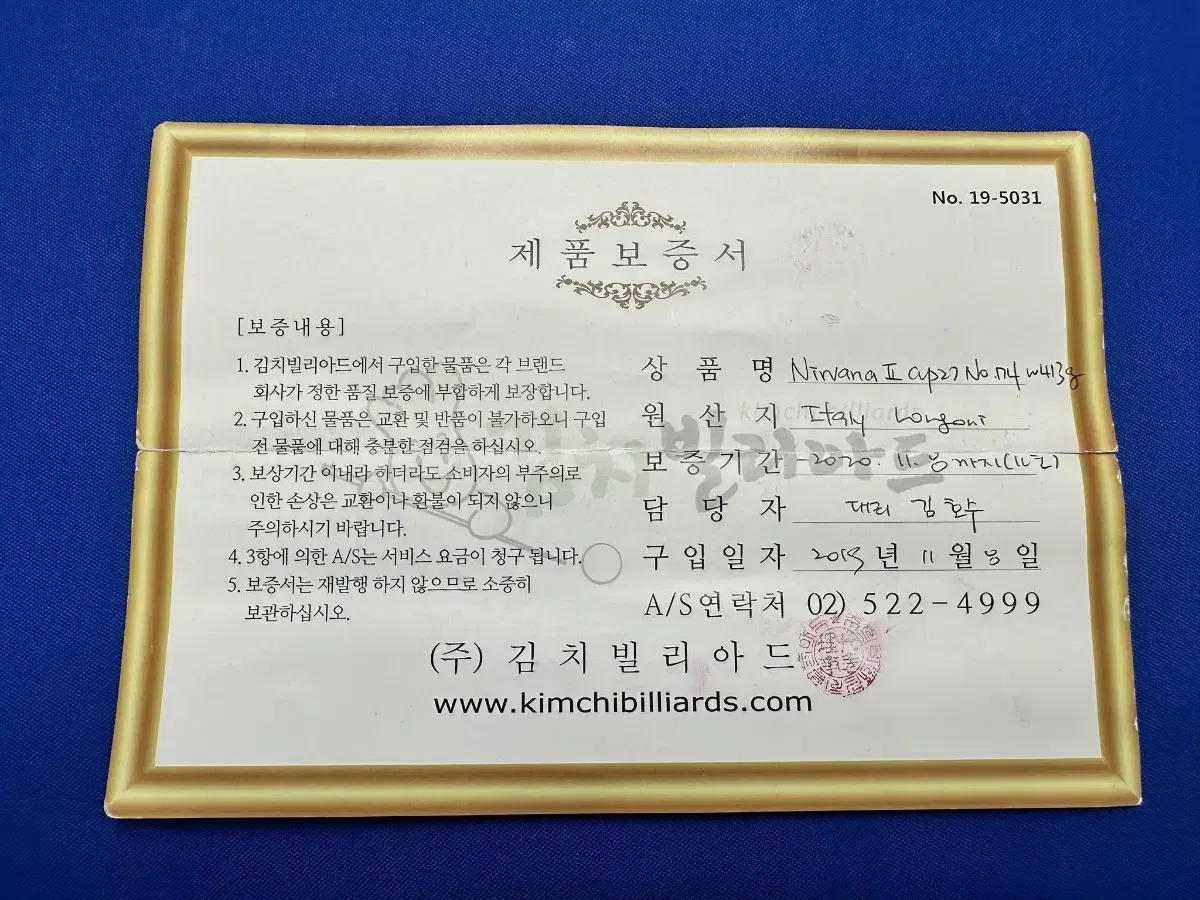 No. 19-5031
제품보증서
[보증내용]
1. 김치빌리아드에서 구입한 물품은 각 브랜드
회사가 정한 품질 보증에 부합하게 보장합니다.
2. 구입하신 물품은 교환 및 반품이 불가하오니 구입
전 물품에 대해 충분한 점검을 하십시오.
3. 보상기간 이내라 하더라도 소비자의 부주의로
인한 손상은 교환이나 환불이 되지 않으니
주의하시기 바랍니다.
4. 3항에 의한 A/S는 서비스 요금이 청구 됩니다.
5. 보증서는 재발행 하지 않으므로 소중히
보관하십시오.
상 품 명 Nirvana II cup27 No 174 w413g
원 산 지 Italy Longoni
보증기간 2020. 11. 까지
담 당 자 대리 김호수
구입일자 2019년 11월 일
A/S연락처 02) 522-4999
kimchi billiards
김치빌리아드
(주) 김치빌리아드
www.kimchibilliards.com